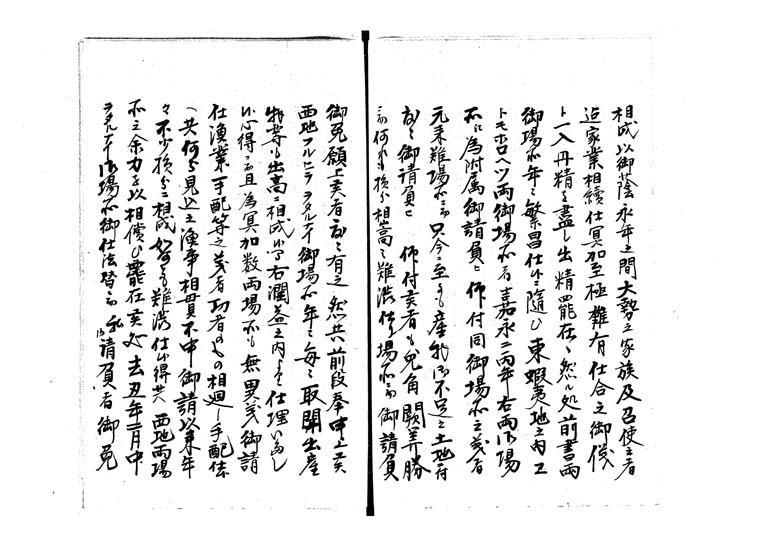 相成以御蔭永年之間大勢之家族及召使之者
迄家業相續仕冥加至極難有仕合之御儀
ト一入丹精を盡し出精罷在候然ル処前書両
御場所年々繁昌仕候ニ随ひ東蝦夷地之内エ
トモホロヘツ両御場所者嘉永二丙年右両御場
所江為附属御請負ニ被 仰付同御場所之義者
元来難場所ニ而只今ニ至候而も産物御不足之土地ニ付
御請負 仰付候者も兎角闕年勝
ニ而何れも損分相嵩ミ難渋仕候場所ニ而御請負
御免願上候者有之然共前段奉申上候
西地フルヒラヲタルナイ御場所年々毎々取開出産
物等も出高ニ相成候ニ付右潤益之内を以仕理いたし
候心得ニ而且為冥加数両場所も無異義御請
仕漁業手配等之義者功者のもの相廻し手配仕
候共何分見込之漁事相貫不申御請以来年
々不少損分ニ相成如何にも難渋仕候得共西地両場
所之余力を以相償ひ罷在候処去丑年二月中
ヲタルナイ御場所御仕法替ニ而私御請負者御免